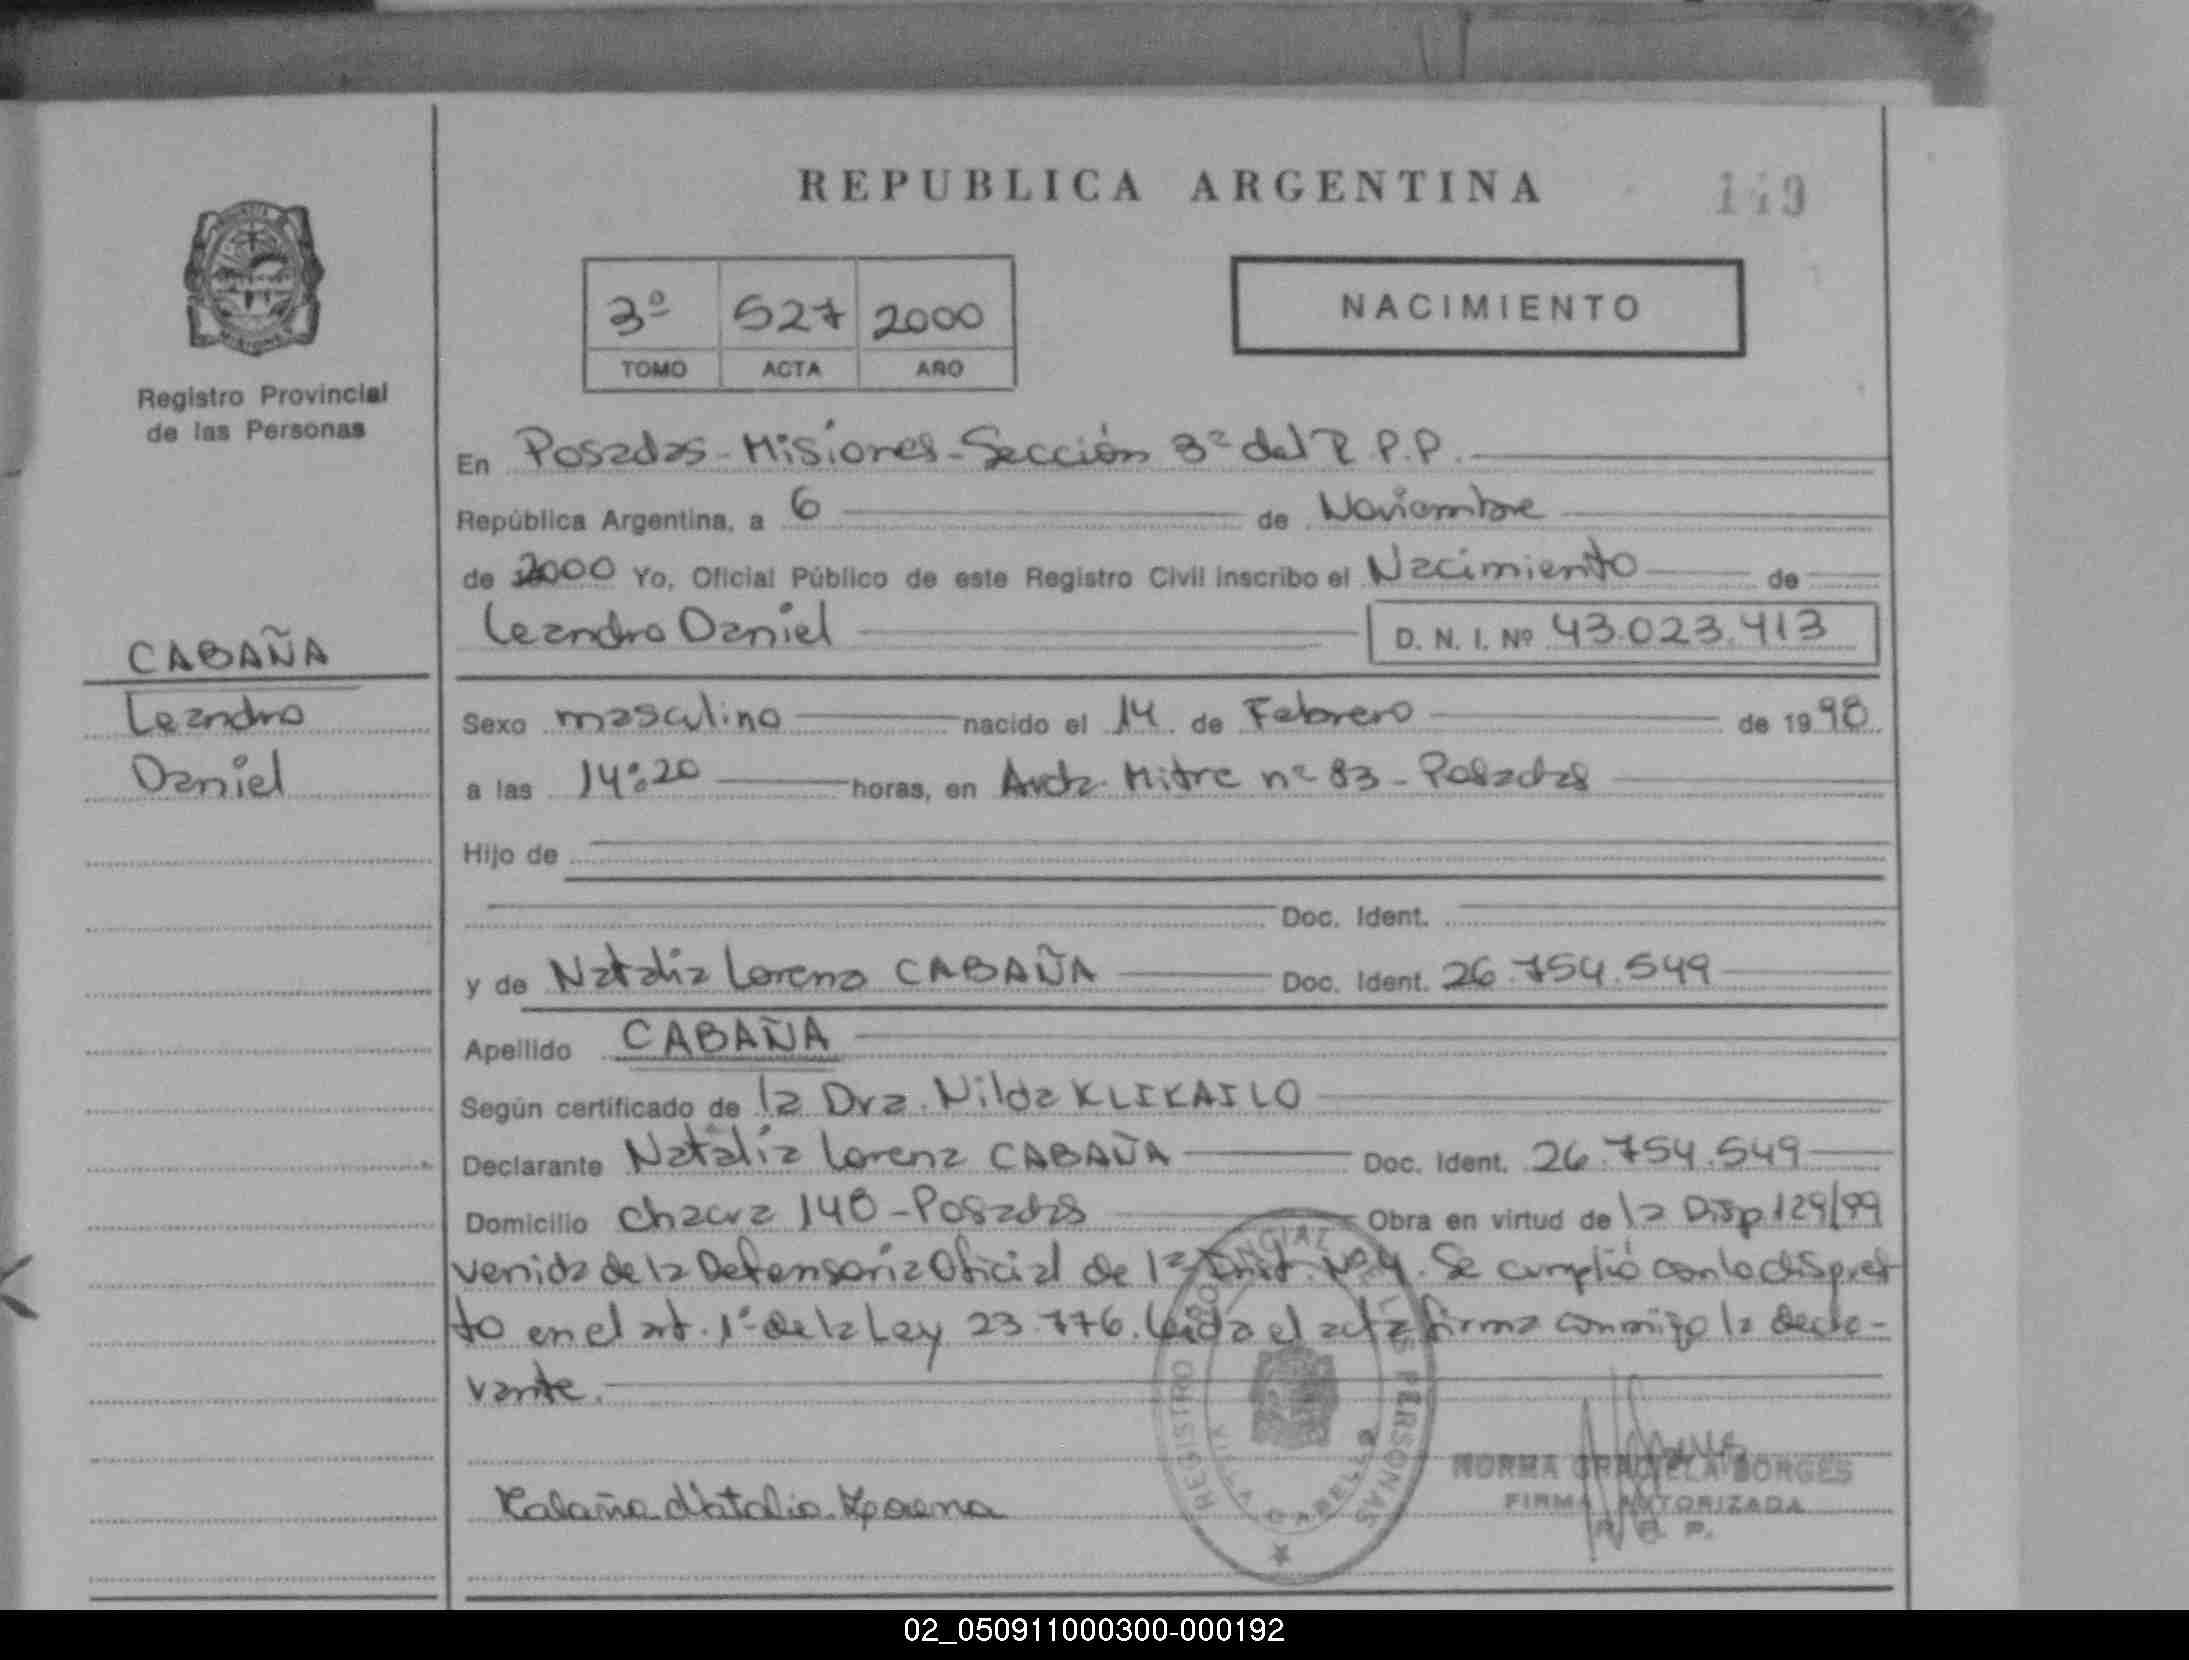 REPUBLICA ARGENTINA
3º 527 2000
TOMO ACTA AÑO
NACIMIENTO
Registro Provincial
de las Personas
En Posadas - Misiones - Sección 3ª del R.P.P.
República Argentina, a 6 de Noviembre
de 2000 Yo, Oficial Público de este Registro Civil inscribo el Nacimiento de
Leandro Daniel D. N. I. Nº 43.023.413
CABAÑA
Leandro
Daniel
Sexo masculino nacido el 14 de Febrero de 1998
a las 14:20 horas, en Avda. Mitre nº 83 - Posadas
Hijo de
Doc. Ident.
y de Natalia Lorena CABAÑA Doc. Ident. 26.754.549
Apellido CABAÑA
Según certificado de la Dra. Nilda KLIKAILO
Declarante Natalia Lorena CABAÑA Doc. Ident. 26.754.549
Domicilio Chacra 148 - Posadas Obra en virtud de la Disp 129/99
venida de la Defensoria Oficial de 1ª Inst. Nº 4. Se cumplió con lo dispues
to en el art. 1º de la Ley 23.776. Leida el acta firma conmigo la decla-
rante.
REGISTRO PROVINCIAL DE LAS PERSONAS
VILLA CABELLO
NORMA GRACIELA BORGES
FIRMA AUTORIZADA
R. P. P.
Cabaña Natalia Lorena
02_050911000300-000192